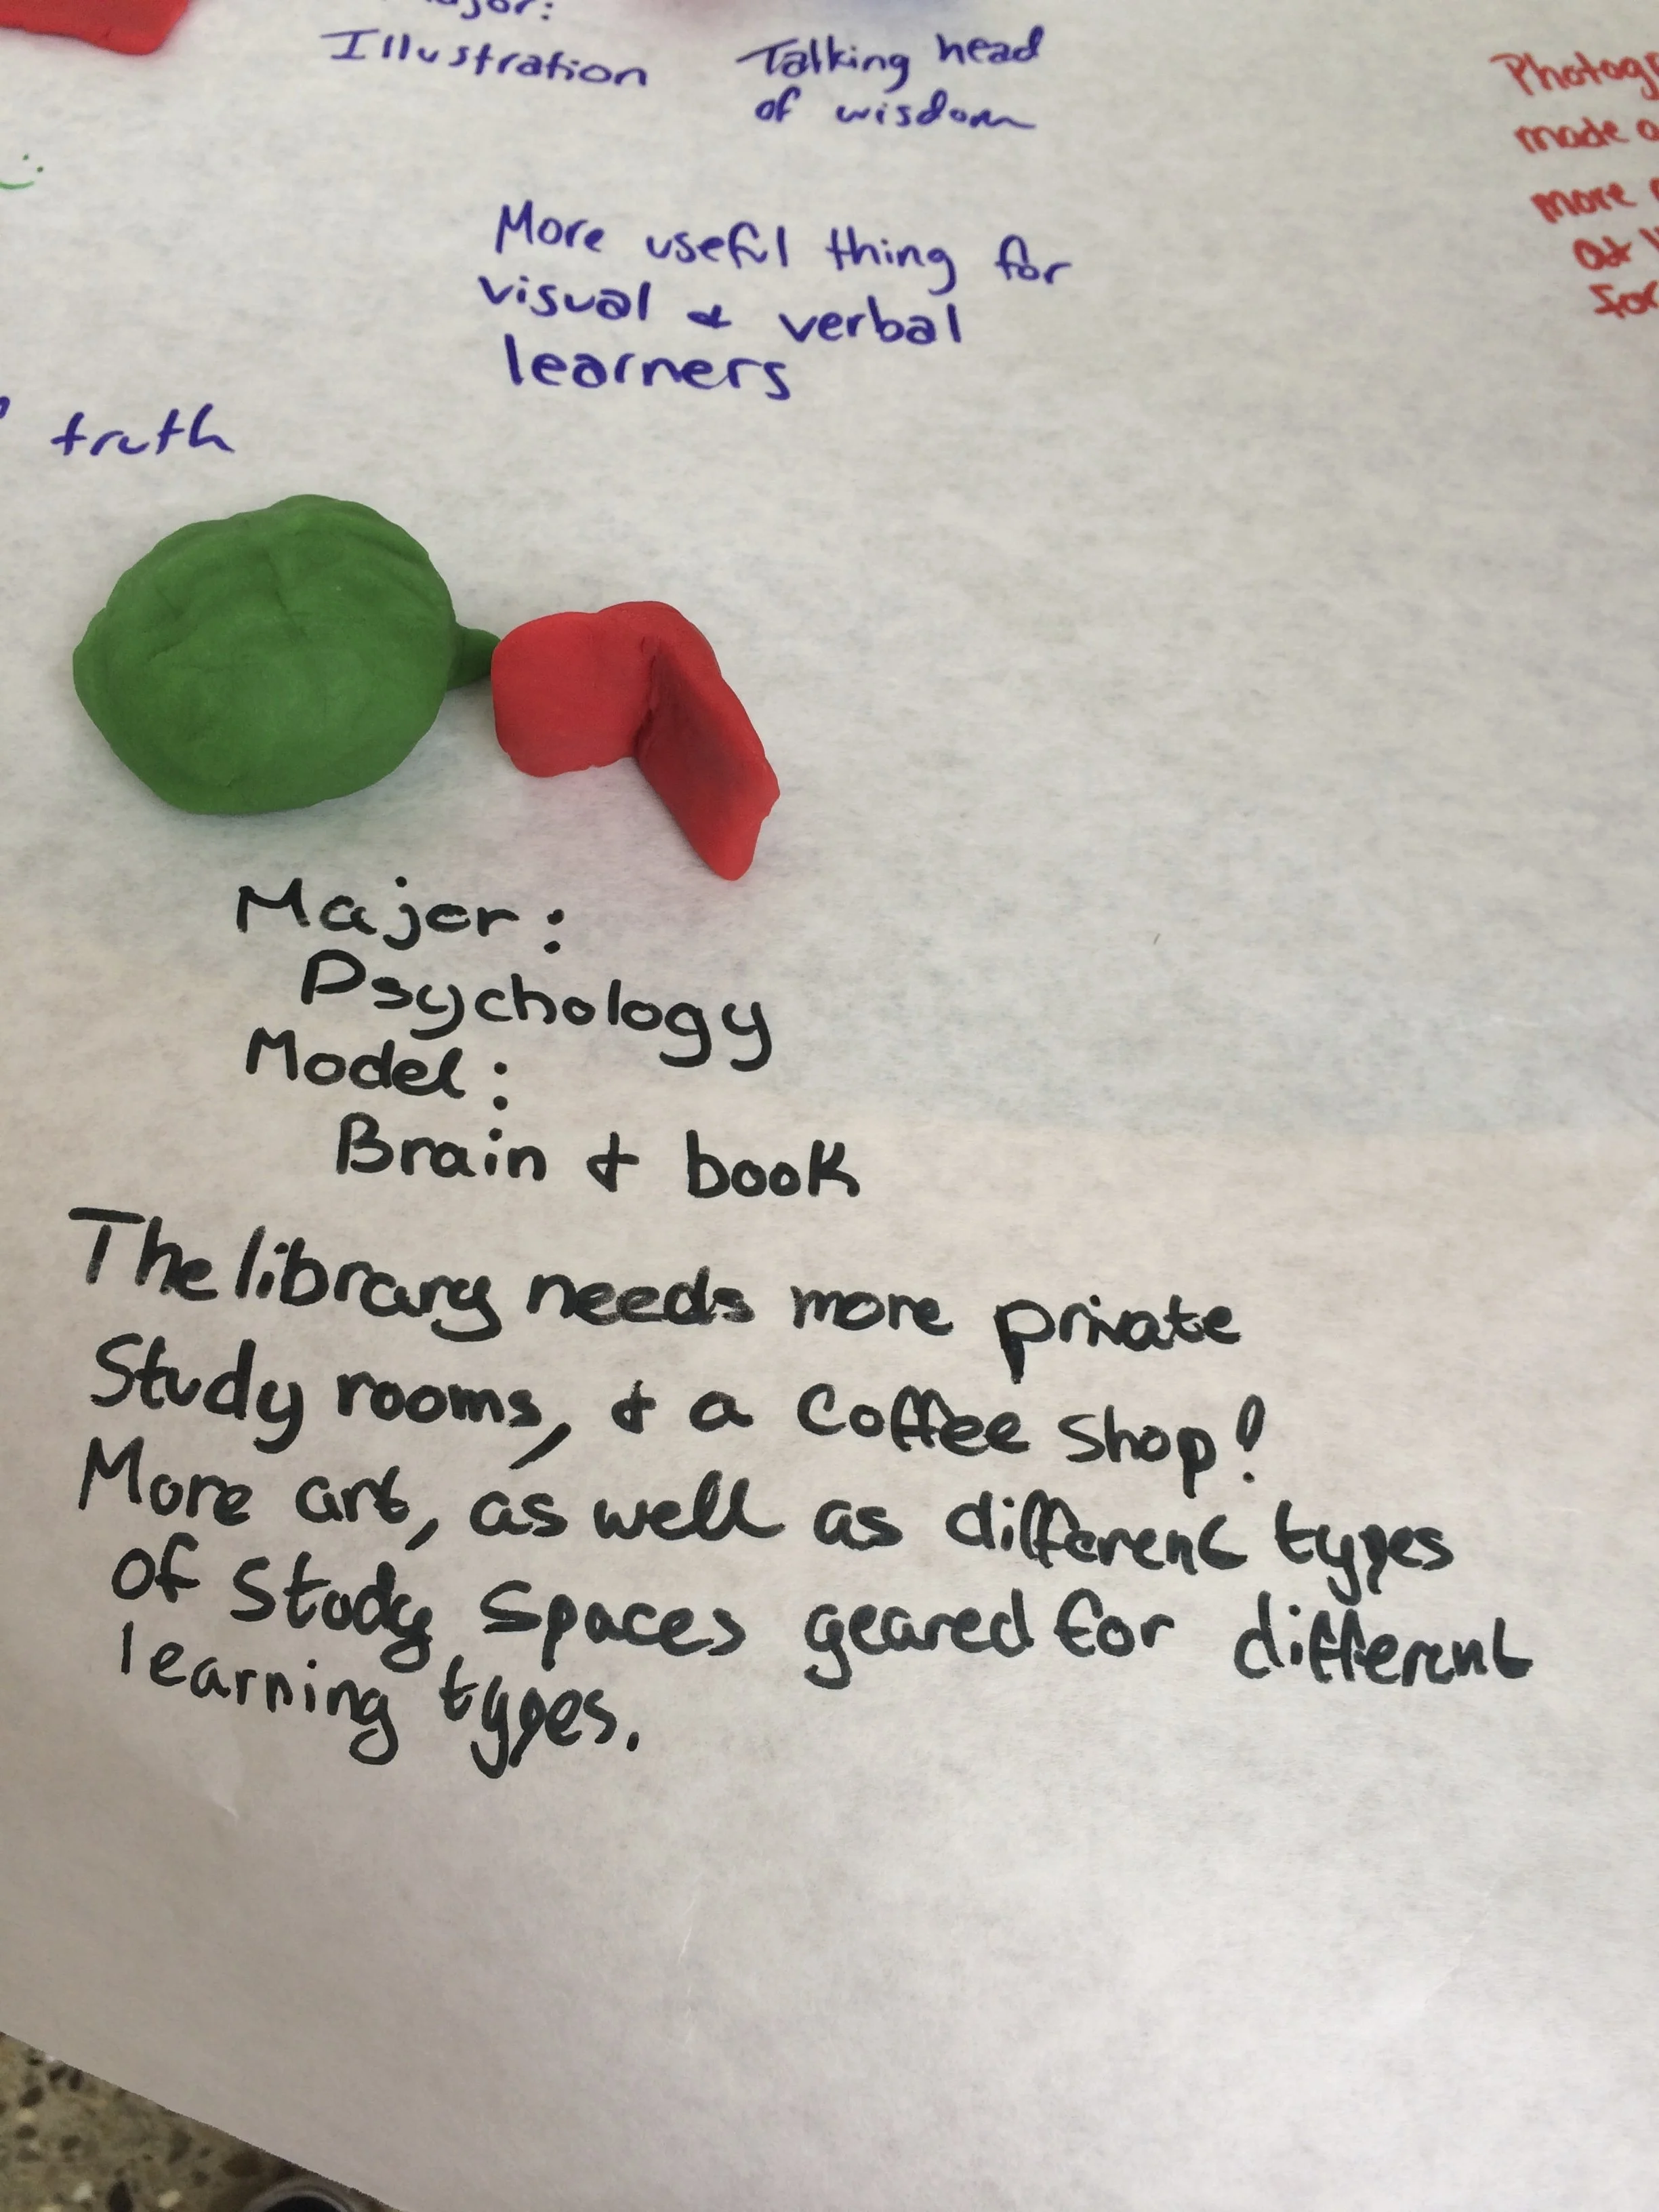 Illustration
Talking head
of wisdom
More useful thing for
visual & verbal
learners
truth
made
more
Major:
Psychology
Model:
Brain & book
The library needs more private
Study rooms, & a Coffee shop!
More art, as well as different types
of Study Spaces geared for different
learning types.